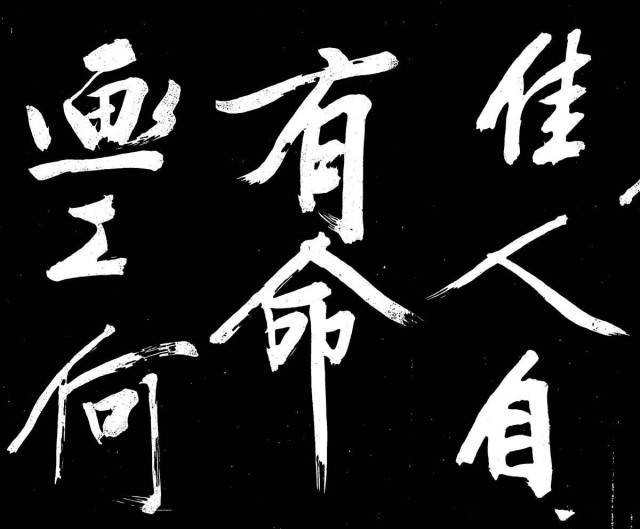 佳人自
有命
画工何